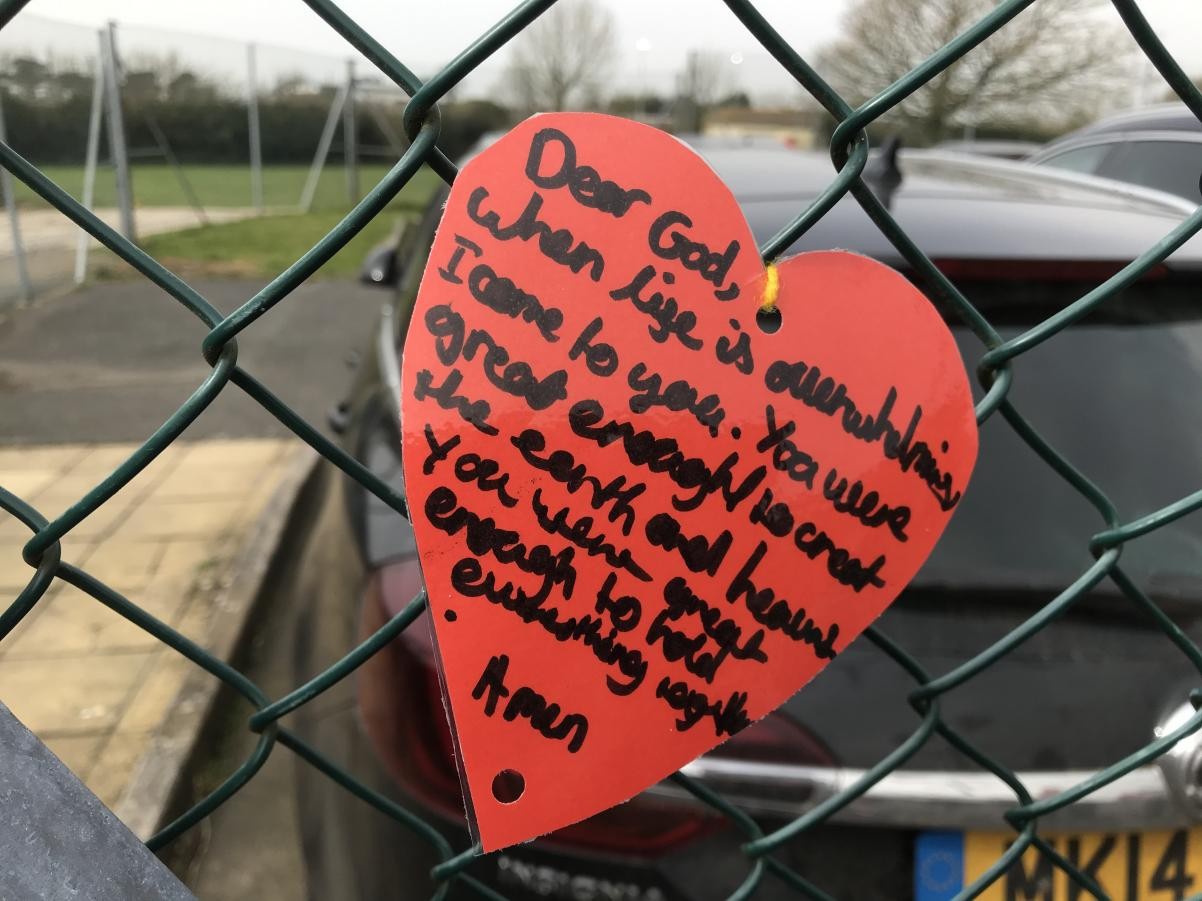 Dear God,
When life is overwhelming
I come to you. You were
great enough to creat
the earth and heavens
You were great
enough to hold
everything together
.
Amen
INSIGNIA
MK14